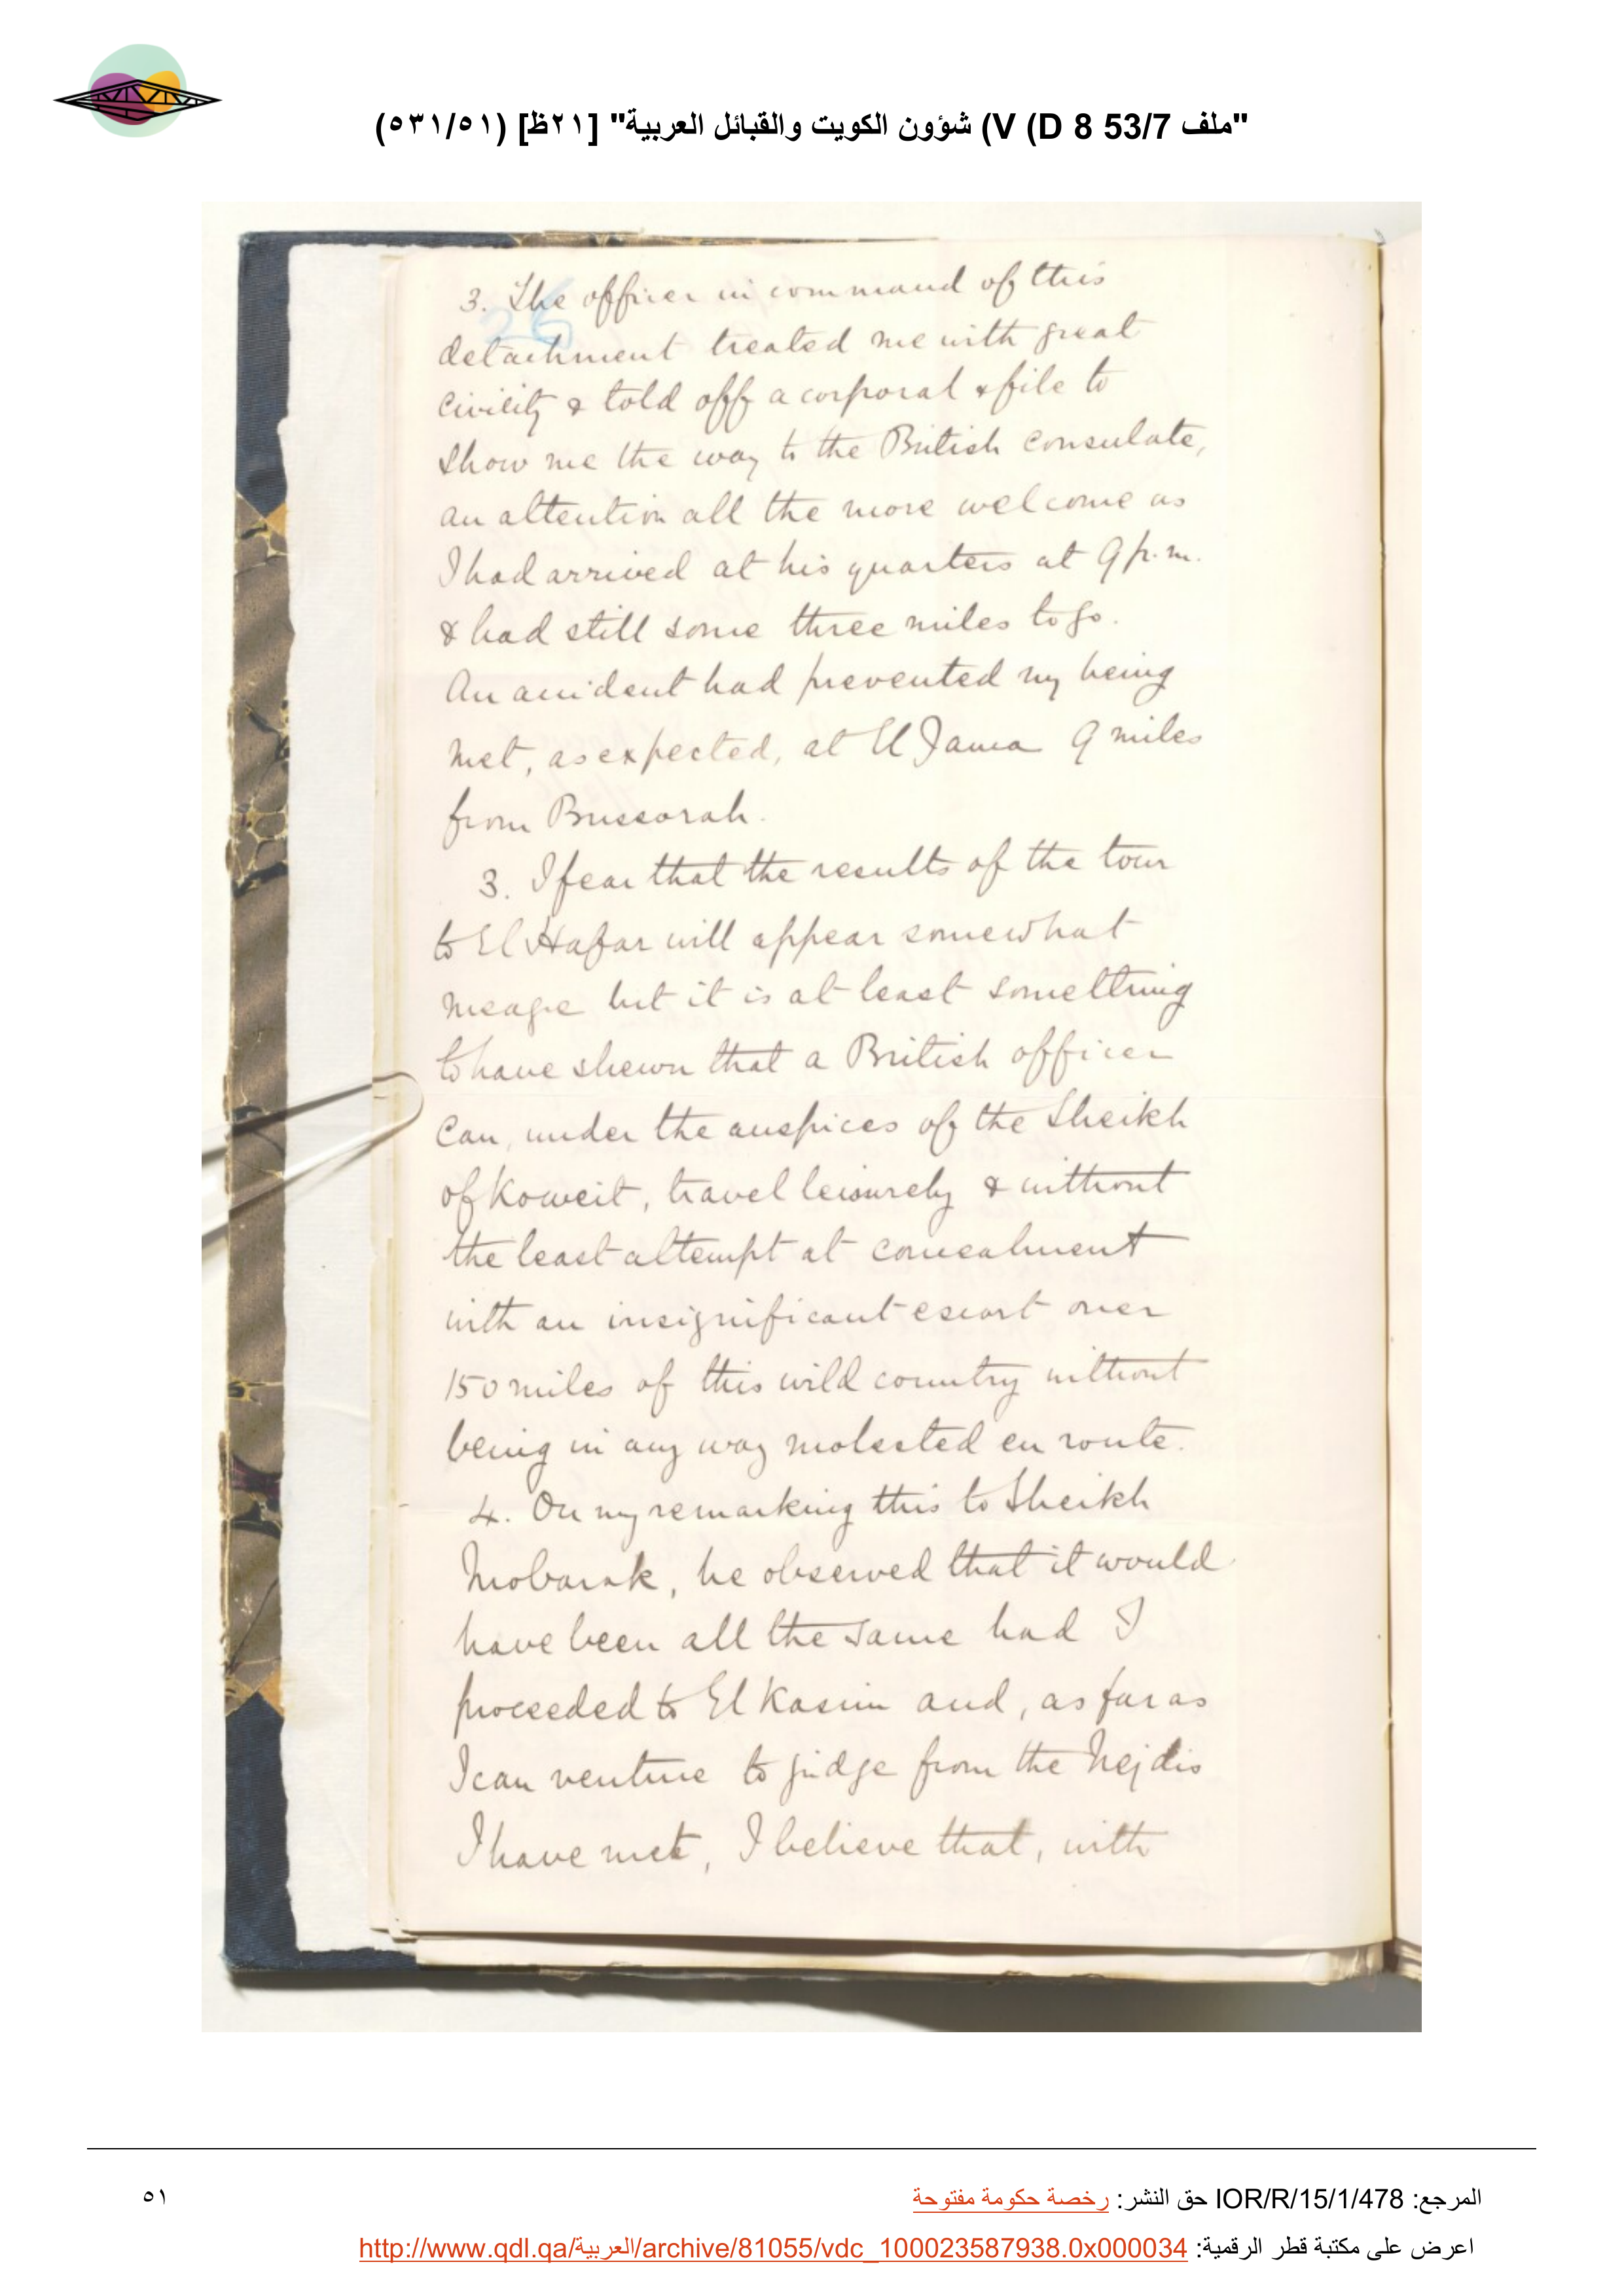 "ملف 53/7 D 8) V) شؤون الكويت والقبائل العربية" [٢١ظ] (٥٣١/٥١)
3. The officer in command of this
detachment treated me with great
civility & told off a corporal & file to
show me the way to the British consulate,
an attention all the more welcome as
I had arrived at his quarters at 9 p.m.
& had still some three miles to go.
An accident had prevented my being
met, as expected, at El Jama 9 miles
from Bussorah.
3. I fear that the results of the tour
to El Hafar will appear somewhat
meagre but it is at least something
to have shewn that a British officer
can, under the auspices of the Sheikh
of Koweit, travel leisurely & without
the least attempt at concealment
with an insignificant escort over
150 miles of this wild country without
being in any way molested en route.
4. On my remarking this to Sheikh
Mobarak, he observed that it would
have been all the same had I
proceeded to El Kasim and, as far as
I can venture to judge from the Nejdis
I have met, I believe that, with
المرجع: IOR/R/15/1/478 حق النشر: رخصة حكومة مفتوحة
٥١
اعرض على مكتبة قطر الرقمية: http://www.qdl.qa/العربية/archive/81055/vdc_100023587938.0x000034